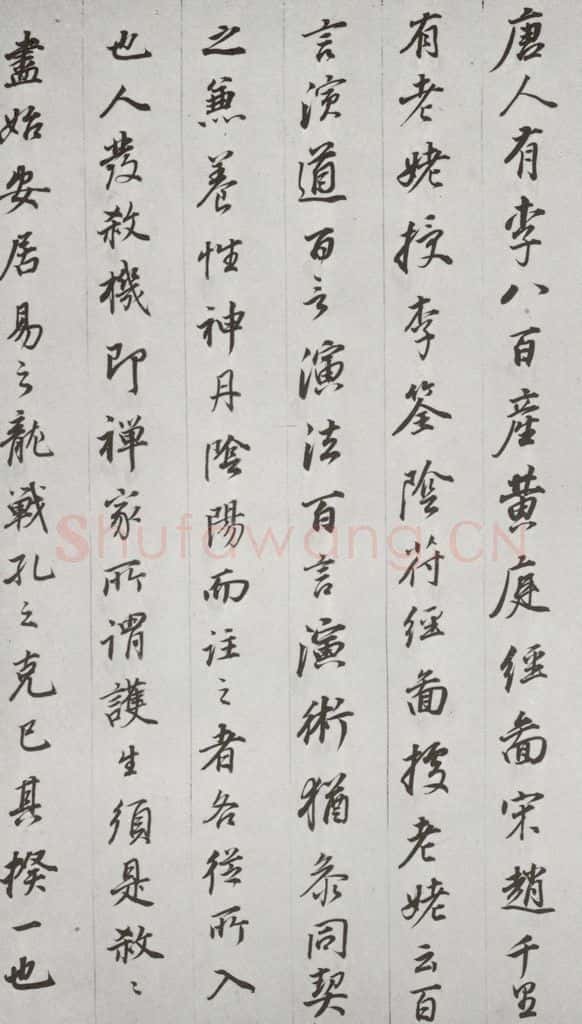 唐人有李八百產黃庭經圖宋趙千里
有老姥授李筌陰符經圖據老姥云百
言演道百言演法百言演術猶參同契
之兼養性神丹陰陽而註之者各從所入
也人發殺機即禪家所謂護生須是殺〻
盡始安居易之龍戰孔之克已其揆一也
Shufawang.CN